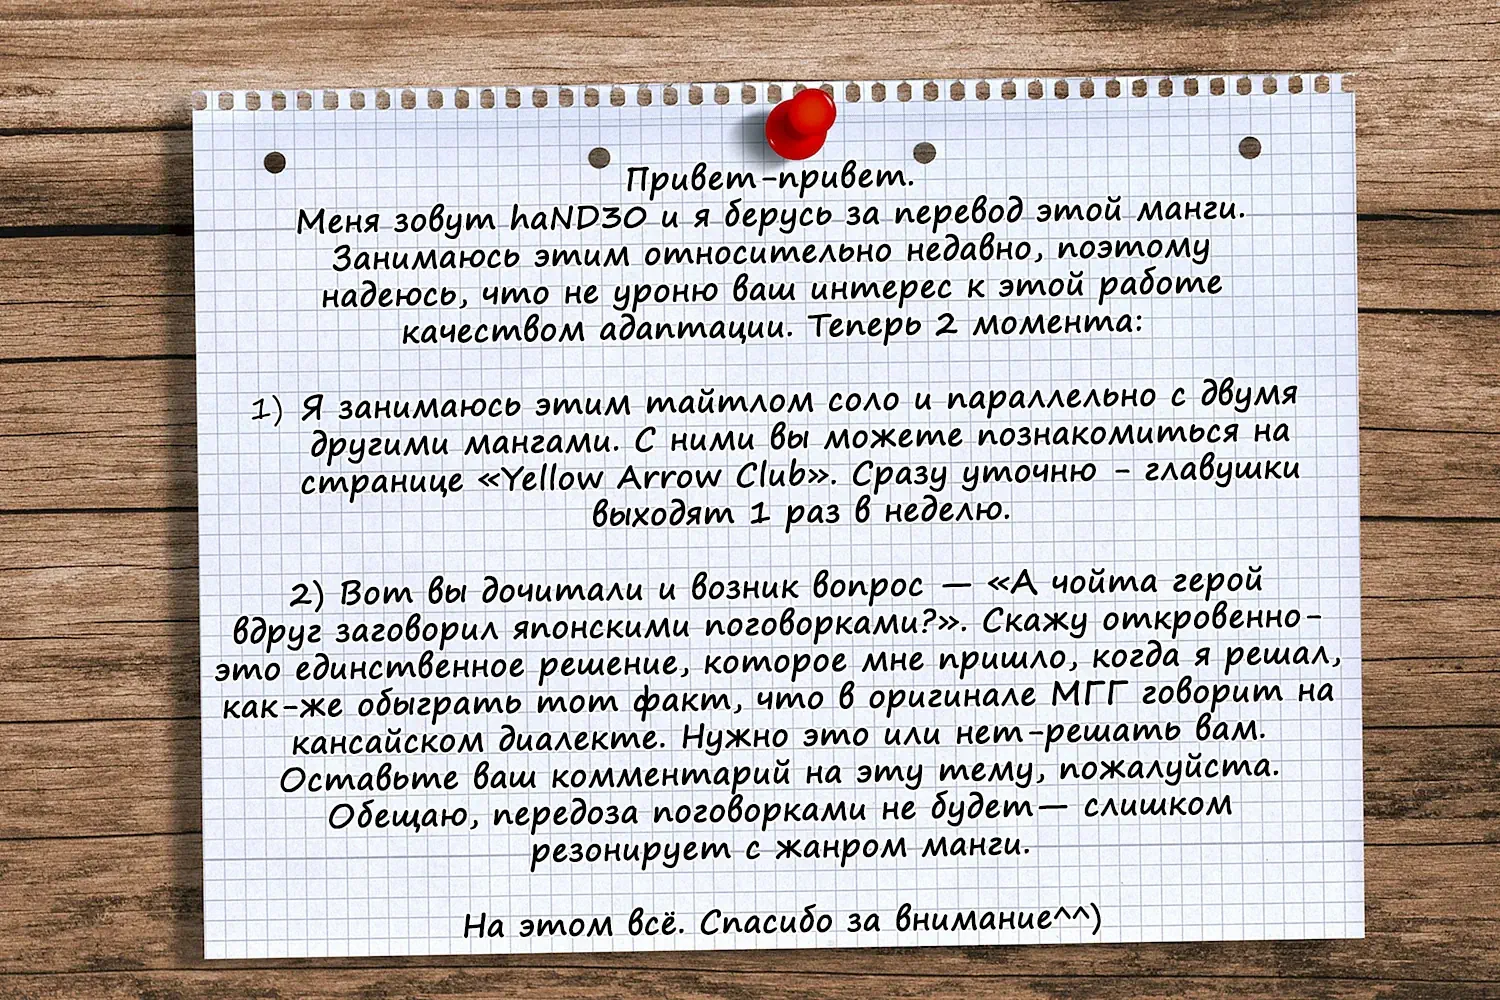 Привет-привет.
Меня зовут haND30 и я берусь за перевод этой манги.
Занимаюсь этим относительно недавно, поэтому
надеюсь, что не уроню ваш интерес к этой работе
качеством адаптации. Теперь 2 момента:
1) Я занимаюсь этим тайтлом соло и параллельно с двумя
другими мангами. С ними вы можете познакомиться на
странице «Yellow Arrow Club». Сразу уточню - главушки
выходят 1 раз в неделю.
2) Вот вы дочитали и возник вопрос — «А чойта герой
вдруг заговорил японскими поговорками?». Скажу откровенно-
это единственное решение, которое мне пришло, когда я решал,
как-же обыграть тот факт, что в оригинале МГГ говорит на
кансайском диалекте. Нужно это или нет-решать вам.
Оставьте ваш комментарий на эту тему, пожалуйста.
Обещаю, передоза поговорками не будет— слишком
резонирует с жанром манги.
На этом всё. Спасибо за внимание^^)